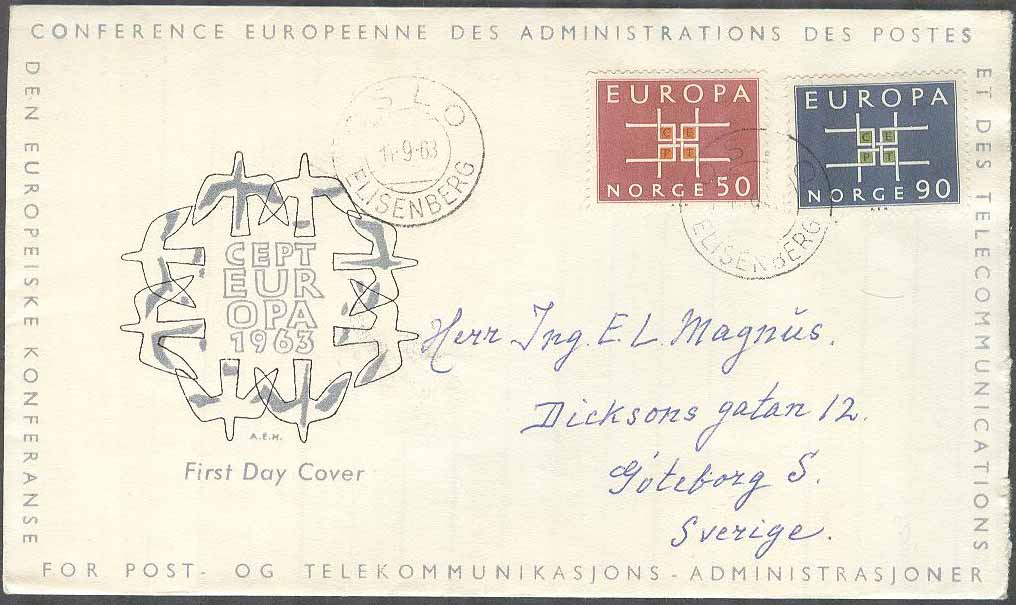 CONFERENCE EUROPEENNE DES ADMINISTRATIONS DES POSTES
ET DES TELECOMMUNICATIONS
DEN EUROPEISKE KONFERANSE
FOR POST- OG TELEKOMMUNIKASJONS - ADMINISTRASJONER
OSLO
-9-63
ELISENBERG
EUROPA
CE
PT
NORGE 50
EUROPA
CE
PT
NORGE 90
ELISENBERG
CEPT
EUR
OPA
1963
A.E.H.
First Day Cover
Herr Ing. E. L. Magnus.
Dicksons gatan 12.
Göteborg S.
Sverige.